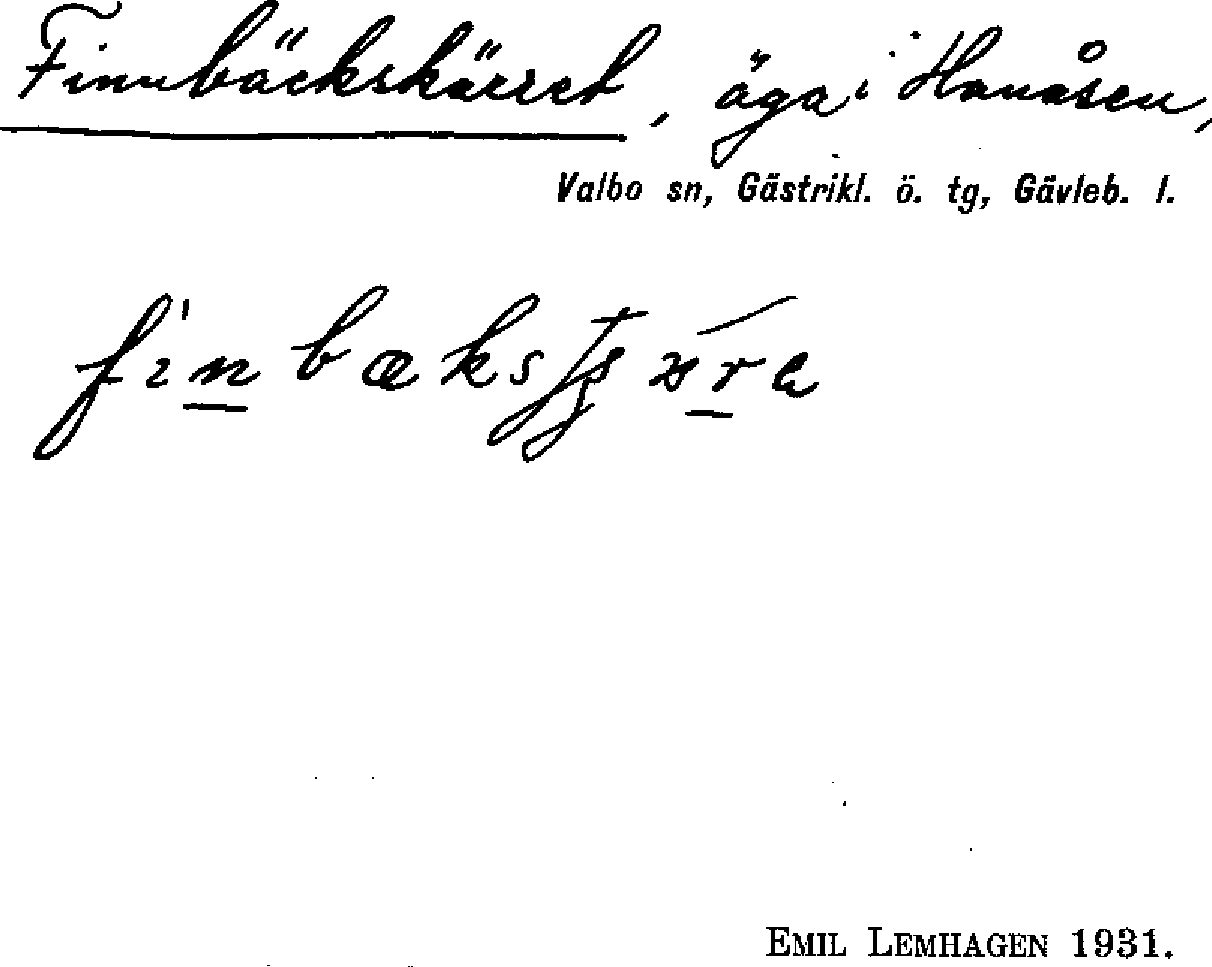 Finnbäckskärret, äga i Hanåsen,
Valbo sn, Gästrikl. ö. tg, Gävleb. l.
EMIL LEMHAGEN 1931.